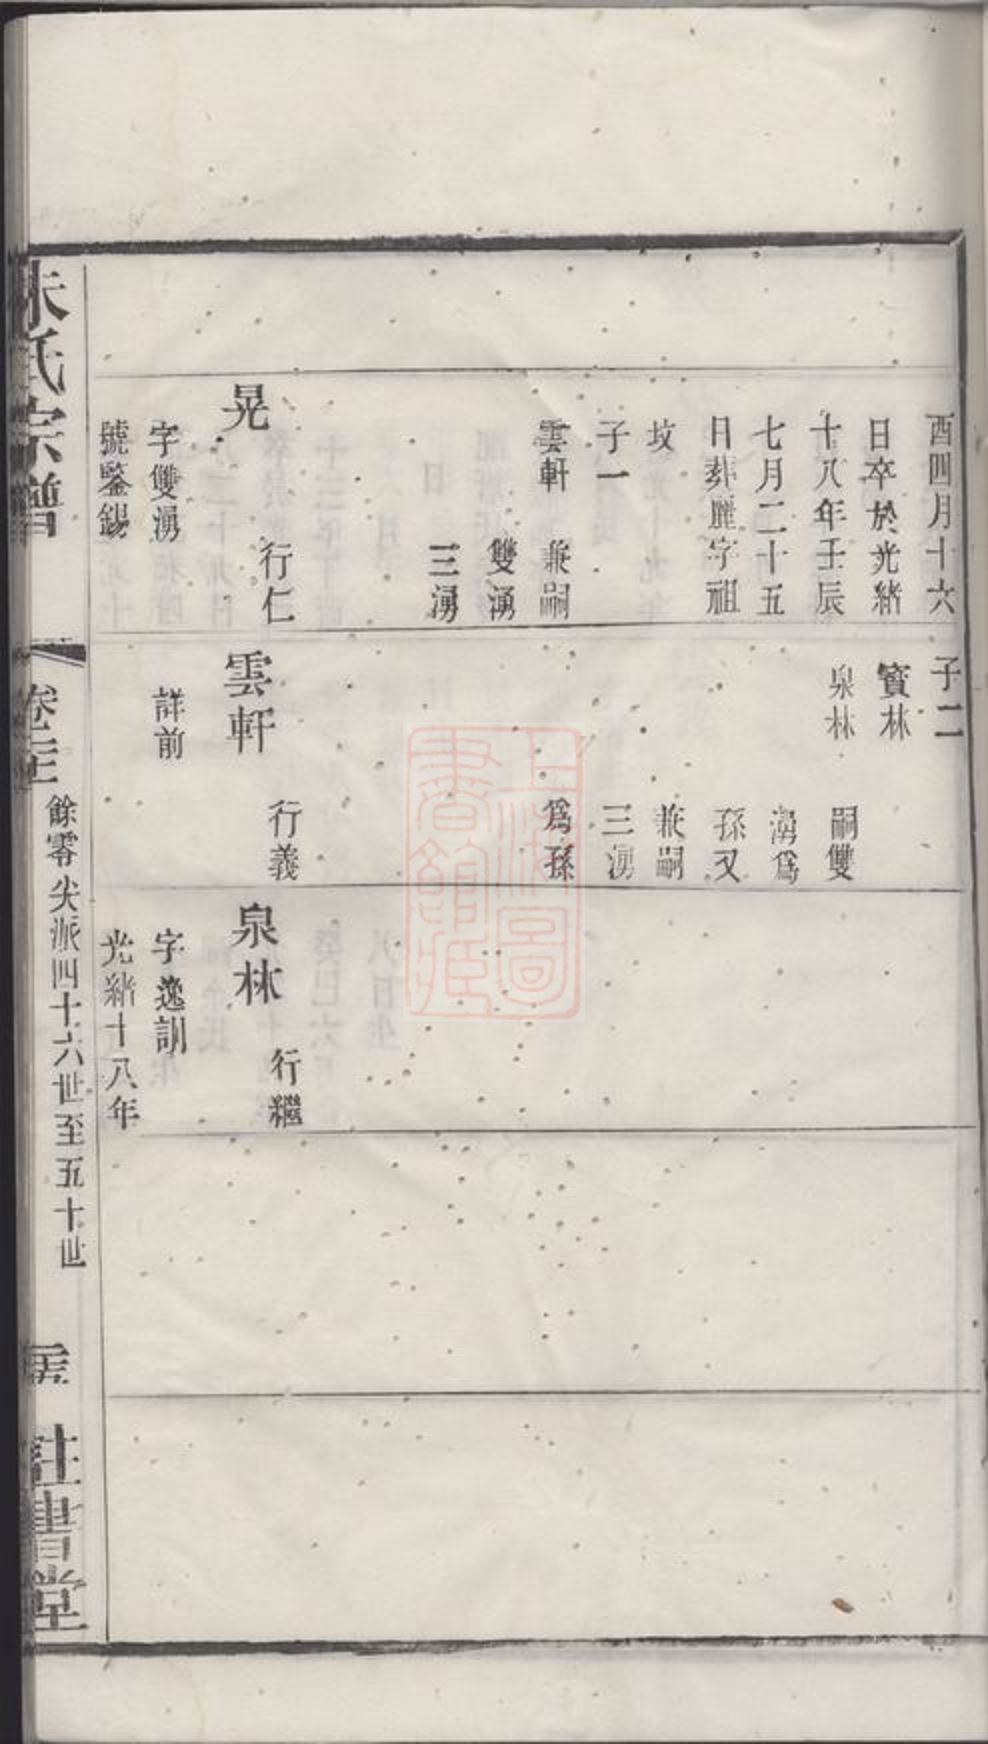 酉四月十六
日卒於光緒
十八年壬辰
七月二十五
日葬麗字祖
坟
子一
雲軒 兼嗣
雙湧
三湧
晃 行仁
字雙湧
號鑒錫
子二
寶林
泉林 嗣雙
湧爲
孫又
兼嗣
三湧
爲孫
雲軒 行義
詳前
泉林 行繼
字逸訓
光緒十八年
朱氏宗譜
餘零尖派四十六世至五十世
上海圖書館藏